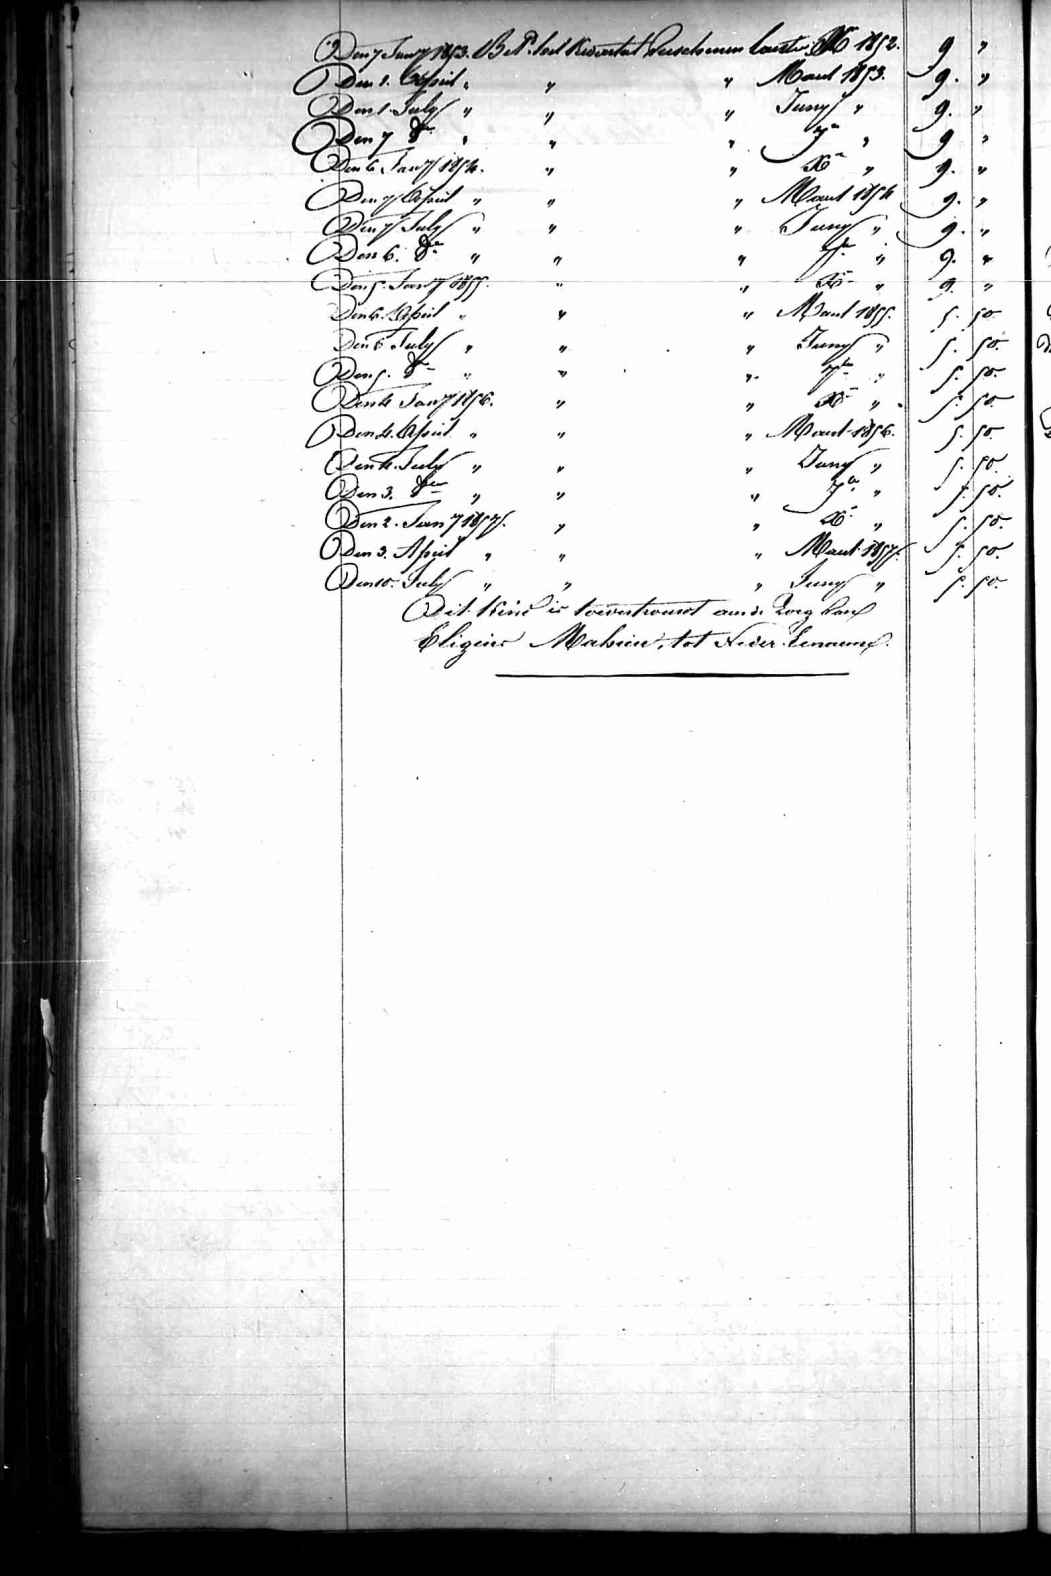 Den 7 Jany 1853. Bet. het Kwartal verschenen laaste Xb 1852. 9 "
Den 1. April " " " Maart 1853. 9. "
Den 1. July " " " Juny " 9. "
Den 7 8b " " " 7b " 9 "
Den 6 Jany 1854. " " Xb " 9. "
Den 7 April " " " Maart 1854 9. "
Den 7 July " " " Juny " 9. "
Den 6. 8b " " " 7b " 9. "
Den 5. Jany 1855. " " Xb " 9. "
Den 6. April " " " Maart 1855. 5. 50
Den 6 July " " " Juny " 5. 50.
Den 5. 8b " " " 7b " 5. 50.
Den 4 Jany 1856. " " Xb " 5. 50.
Den 4. April " " " Maart 1856. 5. 50.
Den 4. July " " " Juny " 5. 50.
Den 3. 8b " " " 7b " 5. 50.
Den 2. Jany 1857. " " Xb " 5. 50.
Den 3. April " " " Maart 1857. 5. 50.
Den 10. July " " " Juny " 5. 50.
Dit Kind is toevertrouwt aan de Zorg van
Eligius Mahieu, tot Neder